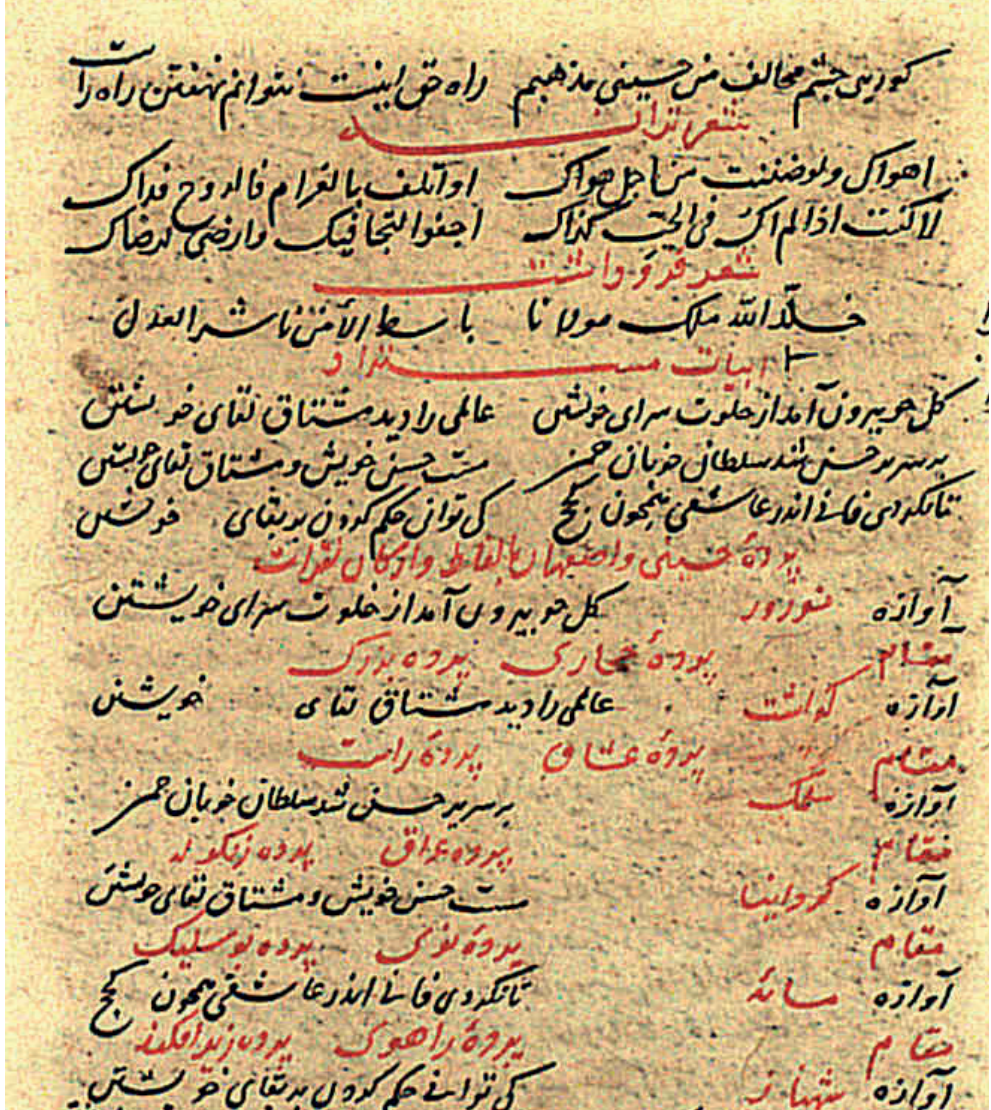 کوریی چشم مخالف من حسینی مذهبم راه حق اینست نتوانم نهفتن راه راست
شعر ترانـه
اهواک ولو ضننت من اجل هواک او اتلف بالغرام فالروح فداک
لا کنت اذا لم اک فی الحب کذاک اجفوا لتجافیک وارضی لرضاک
شعر فرو داشت
خلّد الله ملک مولانا باسط الامن ناشر العدل
ابیات مستزاد
کل چو بیرون آمد از خلوت سرای خویشتن عالمی را دید مشتاق لقای خویشتن
بر سریر حسن شد سلطان خوبان چمن مست حسن خویش و مشتاق لقای خویشتن
تا نکردی فانی اندر عاشقی همچون کجج کی توانی حکم کردن بر بقای خویشتن
پردهٔ حسینی و اصفهان بالفاظ و ارکان نقرات
آوازه نوروز کل چو بیرون آمد از خلوت سرای خویشتن
مقام پردهٔ حجازی پرده بزرک
آوازه کواشت عالمی را دید مشتاق لقای خویشتن
مقام پردهٔ عشاق پردهٔ راست
آوازه سلمک بر سریر حسن شد سلطان خوبان چمن
مقام پرده عراق پرده زنکوله
آوازه کردانیا مست حسن خویش و مشتاق لقای خویشتن
مقام پردهٔ نوی پرده بوسلیک
آوازه مائه تا نکردی فانی اندر عاشقی همچون کجج
مقام پردهٔ راهوی پرده زیرافکند
آوازه شهناز کی توانی حکم کردن بر بقای خویشتن